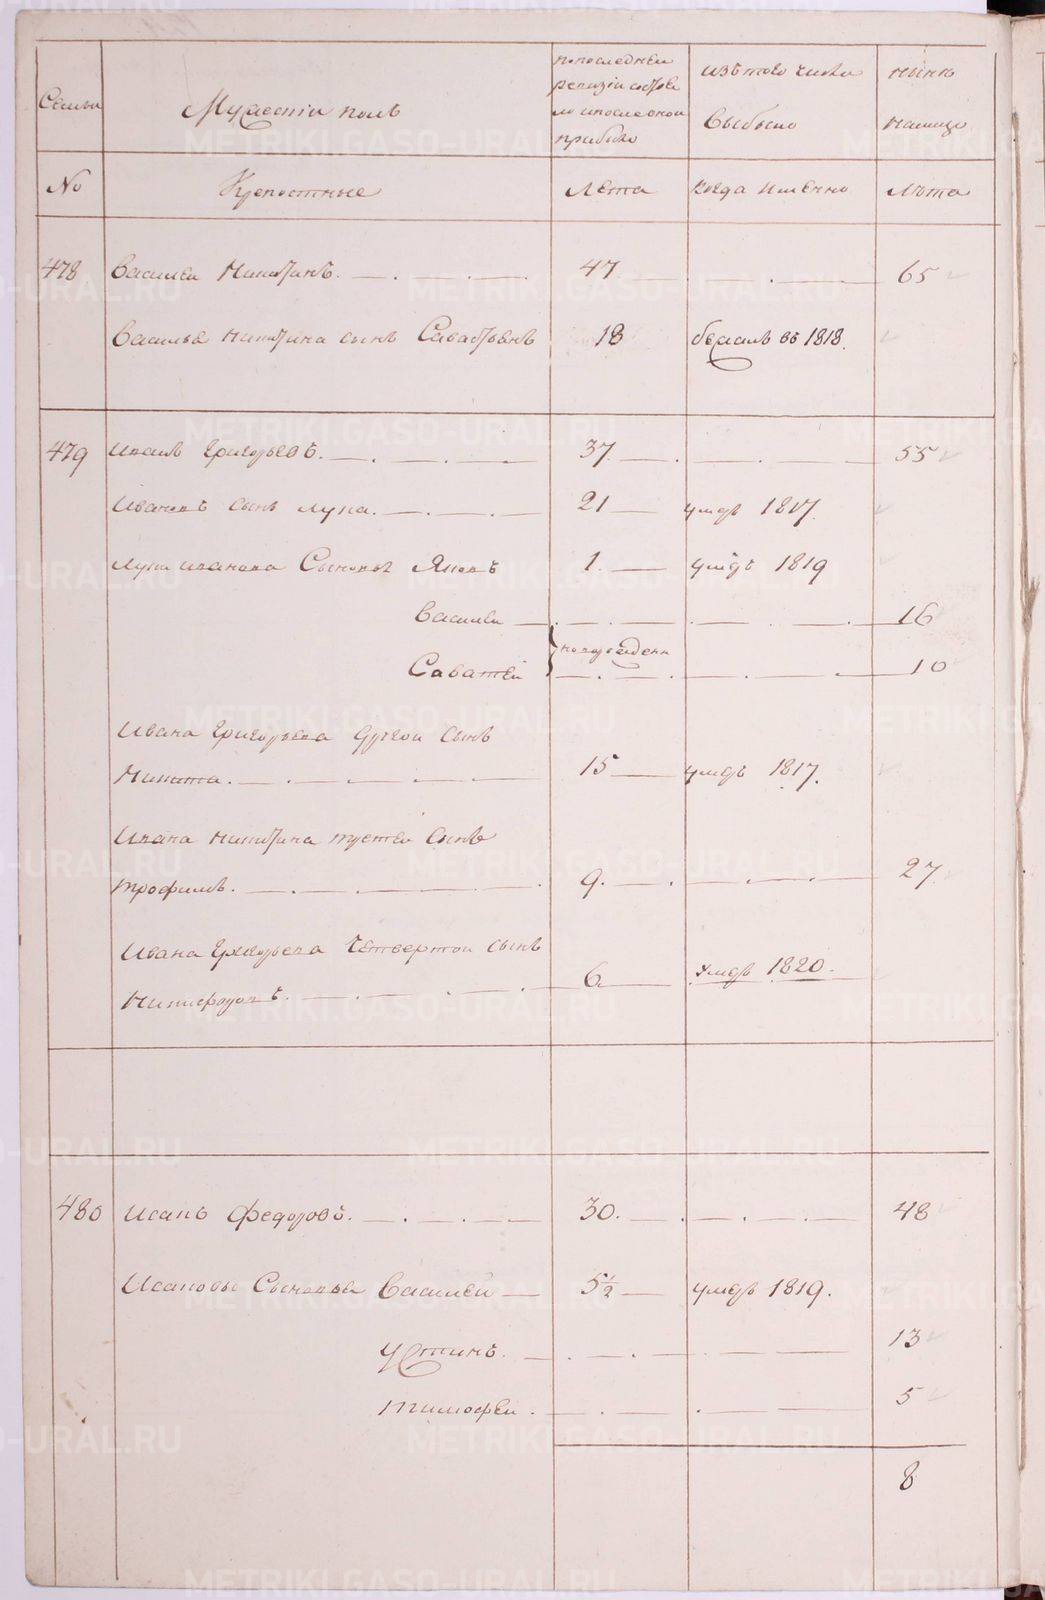 Семьи
Мужескiй полъ
по последней
ревизiи состоя
ло и после оной
прибыло
изъ того числа
выбыло
нынѣ
налицо
No
Крепостные
Лѣта
когда именно
Лѣта
478 Василей Никитинъ. 47 65
Василья Никитина сынъ Саватѣянъ 18 бежалъ въ 1818.
479 Иванъ Григорьевъ. 37 55
Ивановъ сынъ Лупа. 21 умре 1817.
Лупы Иванова Сыновья Яковъ 1 умре 1819
Василей 16
новорожденн
Саватей 10
Ивана Григорьева другой сынъ
Никита. 15 умре 1817.
Ивана Никитина третей сынъ
трофимъ. 9. 27
Ивана Григорьева четвертой сынъ
Никифоровъ. 6 умре 1820.
480 Исакъ Федоровъ. 30. 48
Исаковы Сыновья Василей 5½ умре 1819.
Устинъ. 13
Тимофей. 5
8
METRIKI.GASO-URAL.RU